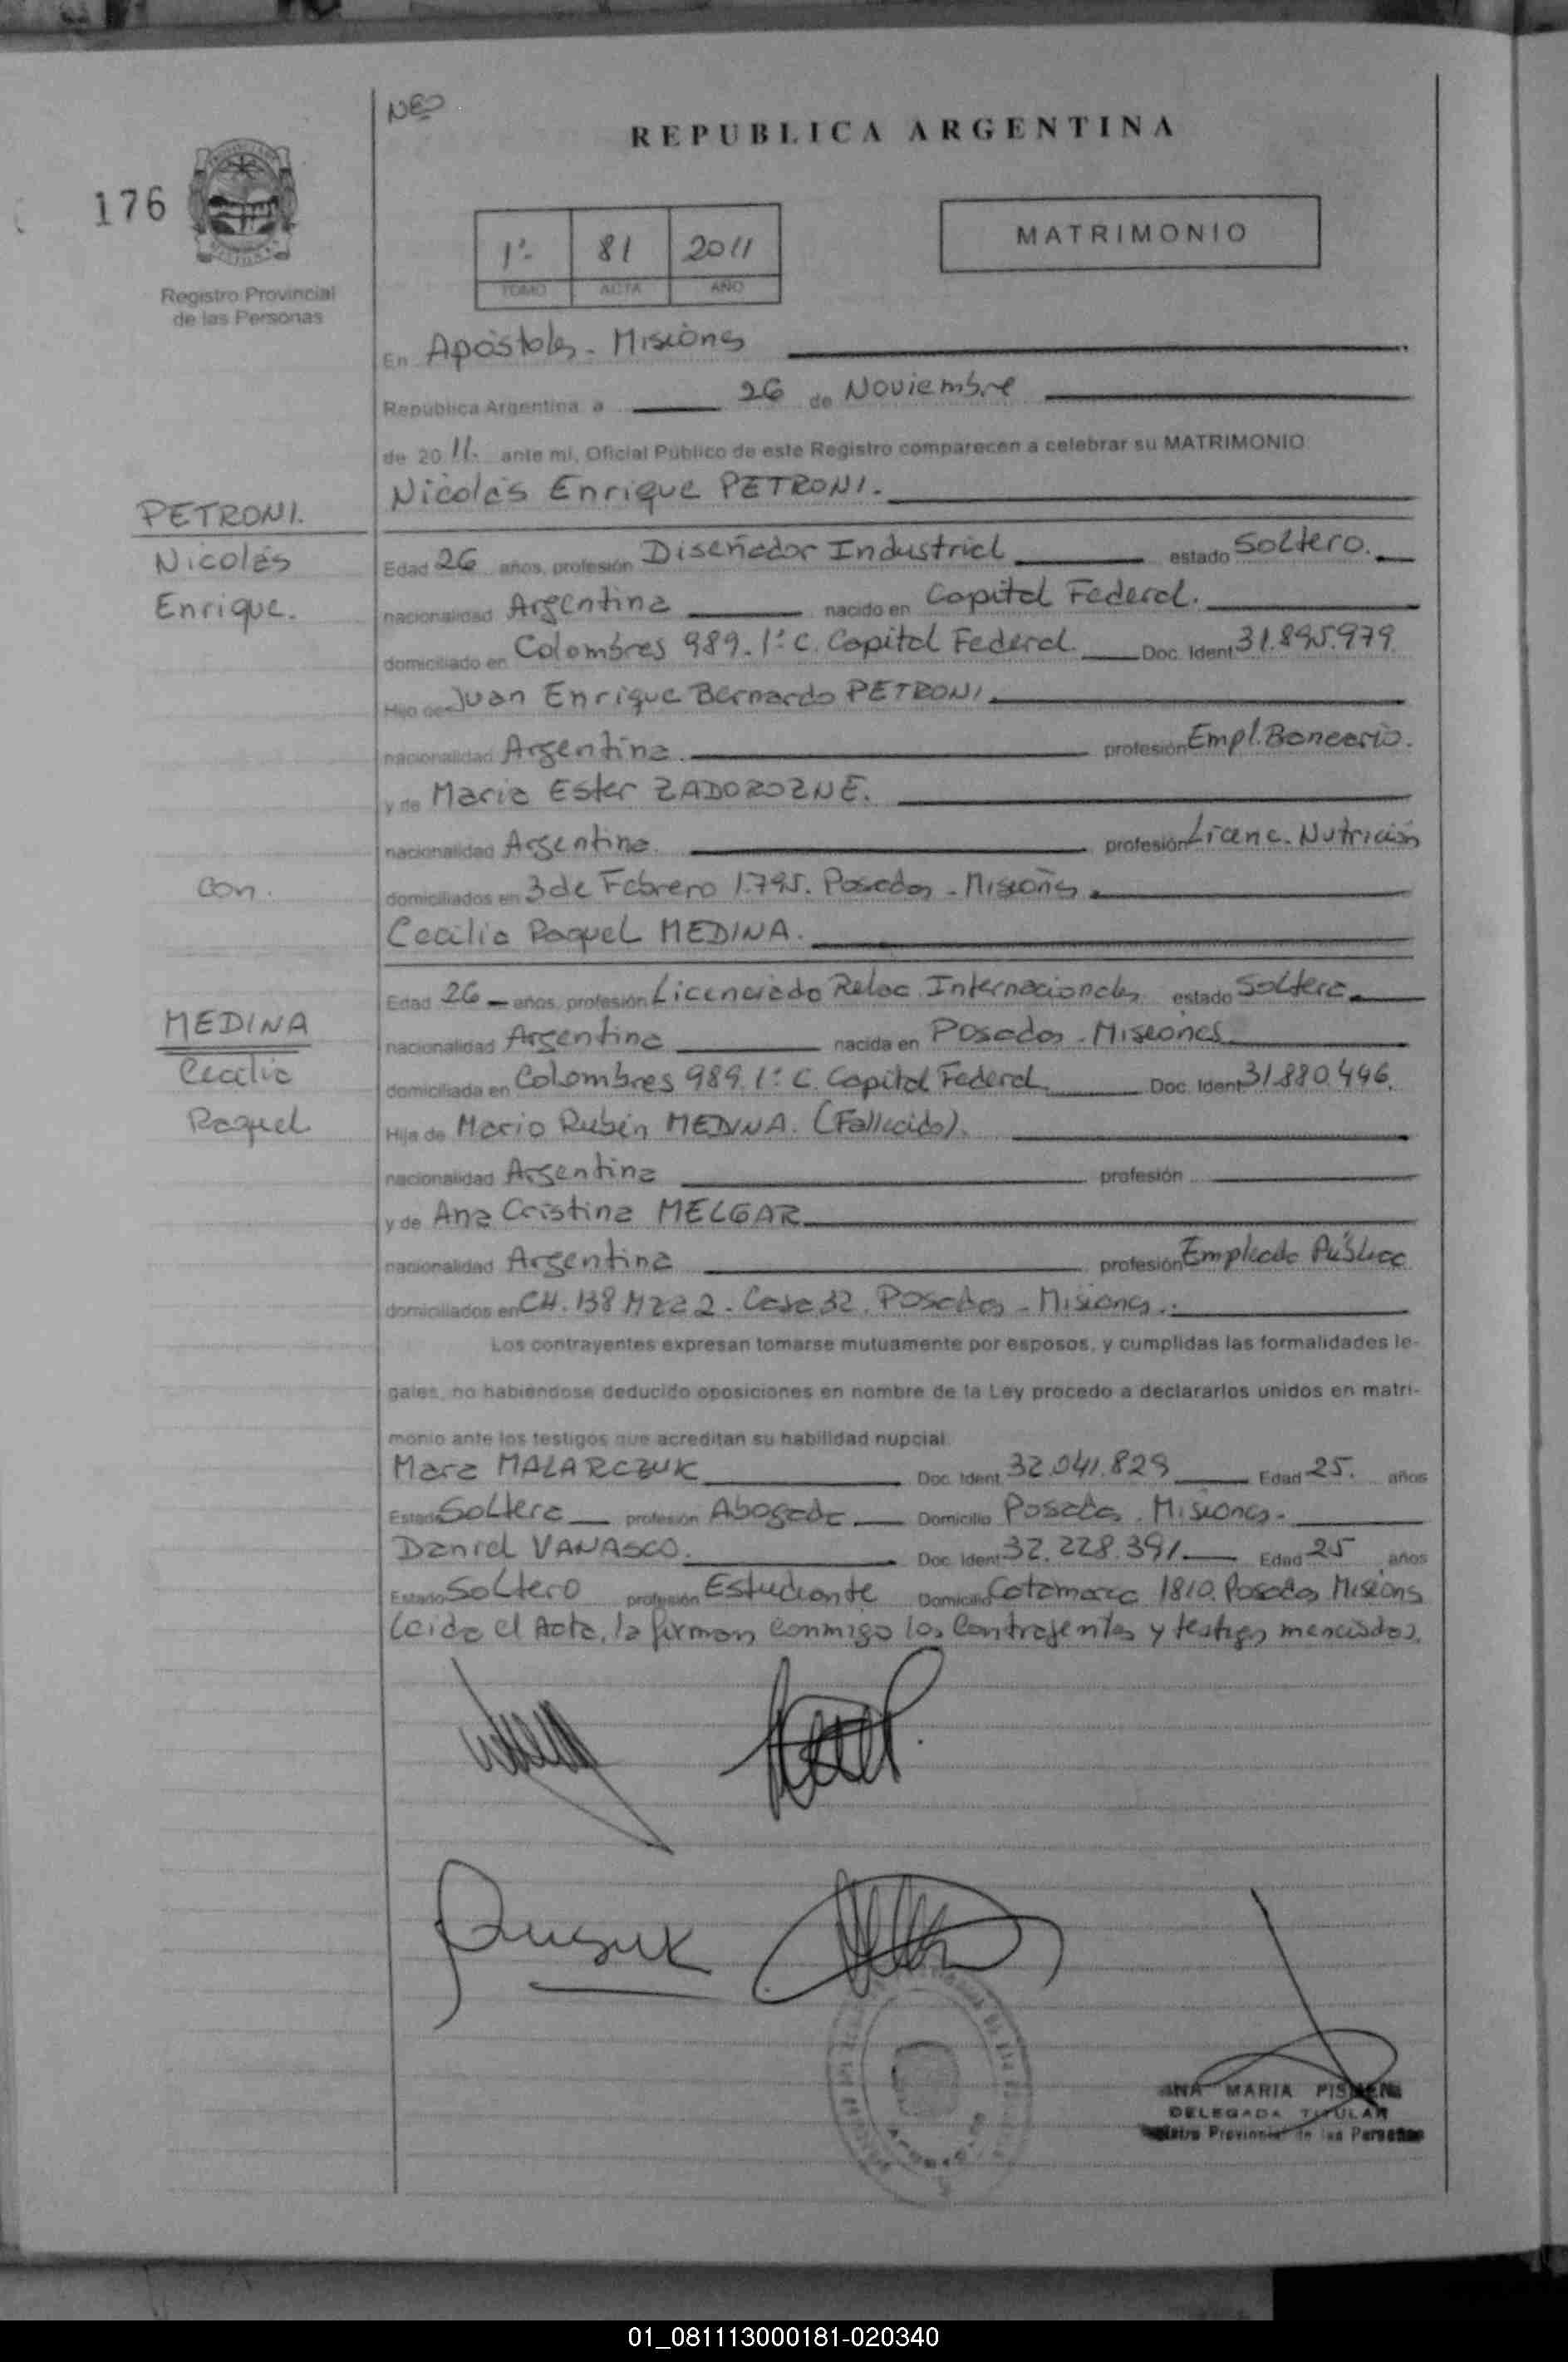 NEO
REPUBLICA ARGENTINA
176
1º 81 2011
TOMO ACTA AÑO
MATRIMONIO
Registro Provincial
de las Personas
En Apóstoles - Misiones
República Argentina a 26 de Noviembre
de 2011. ante mí, Oficial Público de este Registro comparecen a celebrar su MATRIMONIO
Nicolás Enrique PETRONI.
PETRONI.
Nicolás
Enrique.
Edad 26 años, profesión Diseñador Industrial estado Soltero.
nacionalidad Argentina nacido en Capital Federal.
domiciliado en Colombres 989. 1º C. Capital Federal. Doc. Ident 31.895.979.
Hijo de Juan Enrique Bernardo PETRONI
nacionalidad Argentina. profesión Empl. Bancario.
y de Maria Ester ZADOROZNE.
nacionalidad Argentina. profesión Licenc. Nutrición
domiciliados en 3 de Febrero 1.795. Posadas - Misiones.
con.
Cecilia Raquel MEDINA.
MEDINA
Cecilia
Raquel
Edad 26 años, profesión Licenciada Relac. Internacionales estado Soltera.
nacionalidad Argentina nacida en Posadas - Misiones
domiciliada en Colombres 989. 1º C. Capital Federal. Doc. Ident 31.880.496.
Hija de Mario Rubén MEDINA. (Fallecido).
nacionalidad Argentina profesión
y de Ana Cristina MELGAR
nacionalidad Argentina profesión Empleada Pública
domiciliados en CH. 138 Mza 2. Casa 32. Posadas - Misiones.
Los contrayentes expresan tomarse mutuamente por esposos, y cumplidas las formalidades le-
gales, no habiéndose deducido oposiciones en nombre de la Ley procedo a declararlos unidos en matri-
monio ante los testigos que acreditan su habilidad nupcial.
Mara MALARCZUK Doc. Ident. 32.041.829 Edad 25. años
Estado Soltera profesión Abogada Domicilio Posadas. Misiones.
Daniel VANASCO. Doc. Ident. 32.228.391 Edad 25 años
Estado Soltero profesión Estudiante Domicilio Catamarca 1810. Posadas Misiones
Leida el Acta, la firman conmigo los Contrayentes y testigos mencionados.
ANA MARIA
DELEGADA TITULAR
Provincial de las Personas
01_081113000181-020340